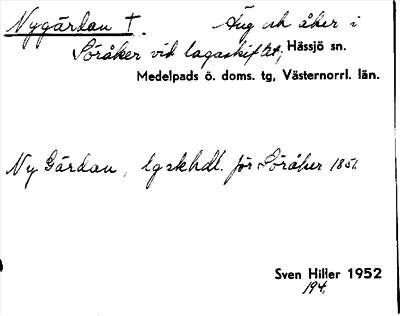 Nygärdan †. Äng och åker i
Söråker vid lagaskiftet, Hässjö sn.
Medelpads ö. doms. tg, Västernorrl. län.
Ny Gärdan, lgskhdl. för Söråker 1851.
Sven Hiller 1952
194.